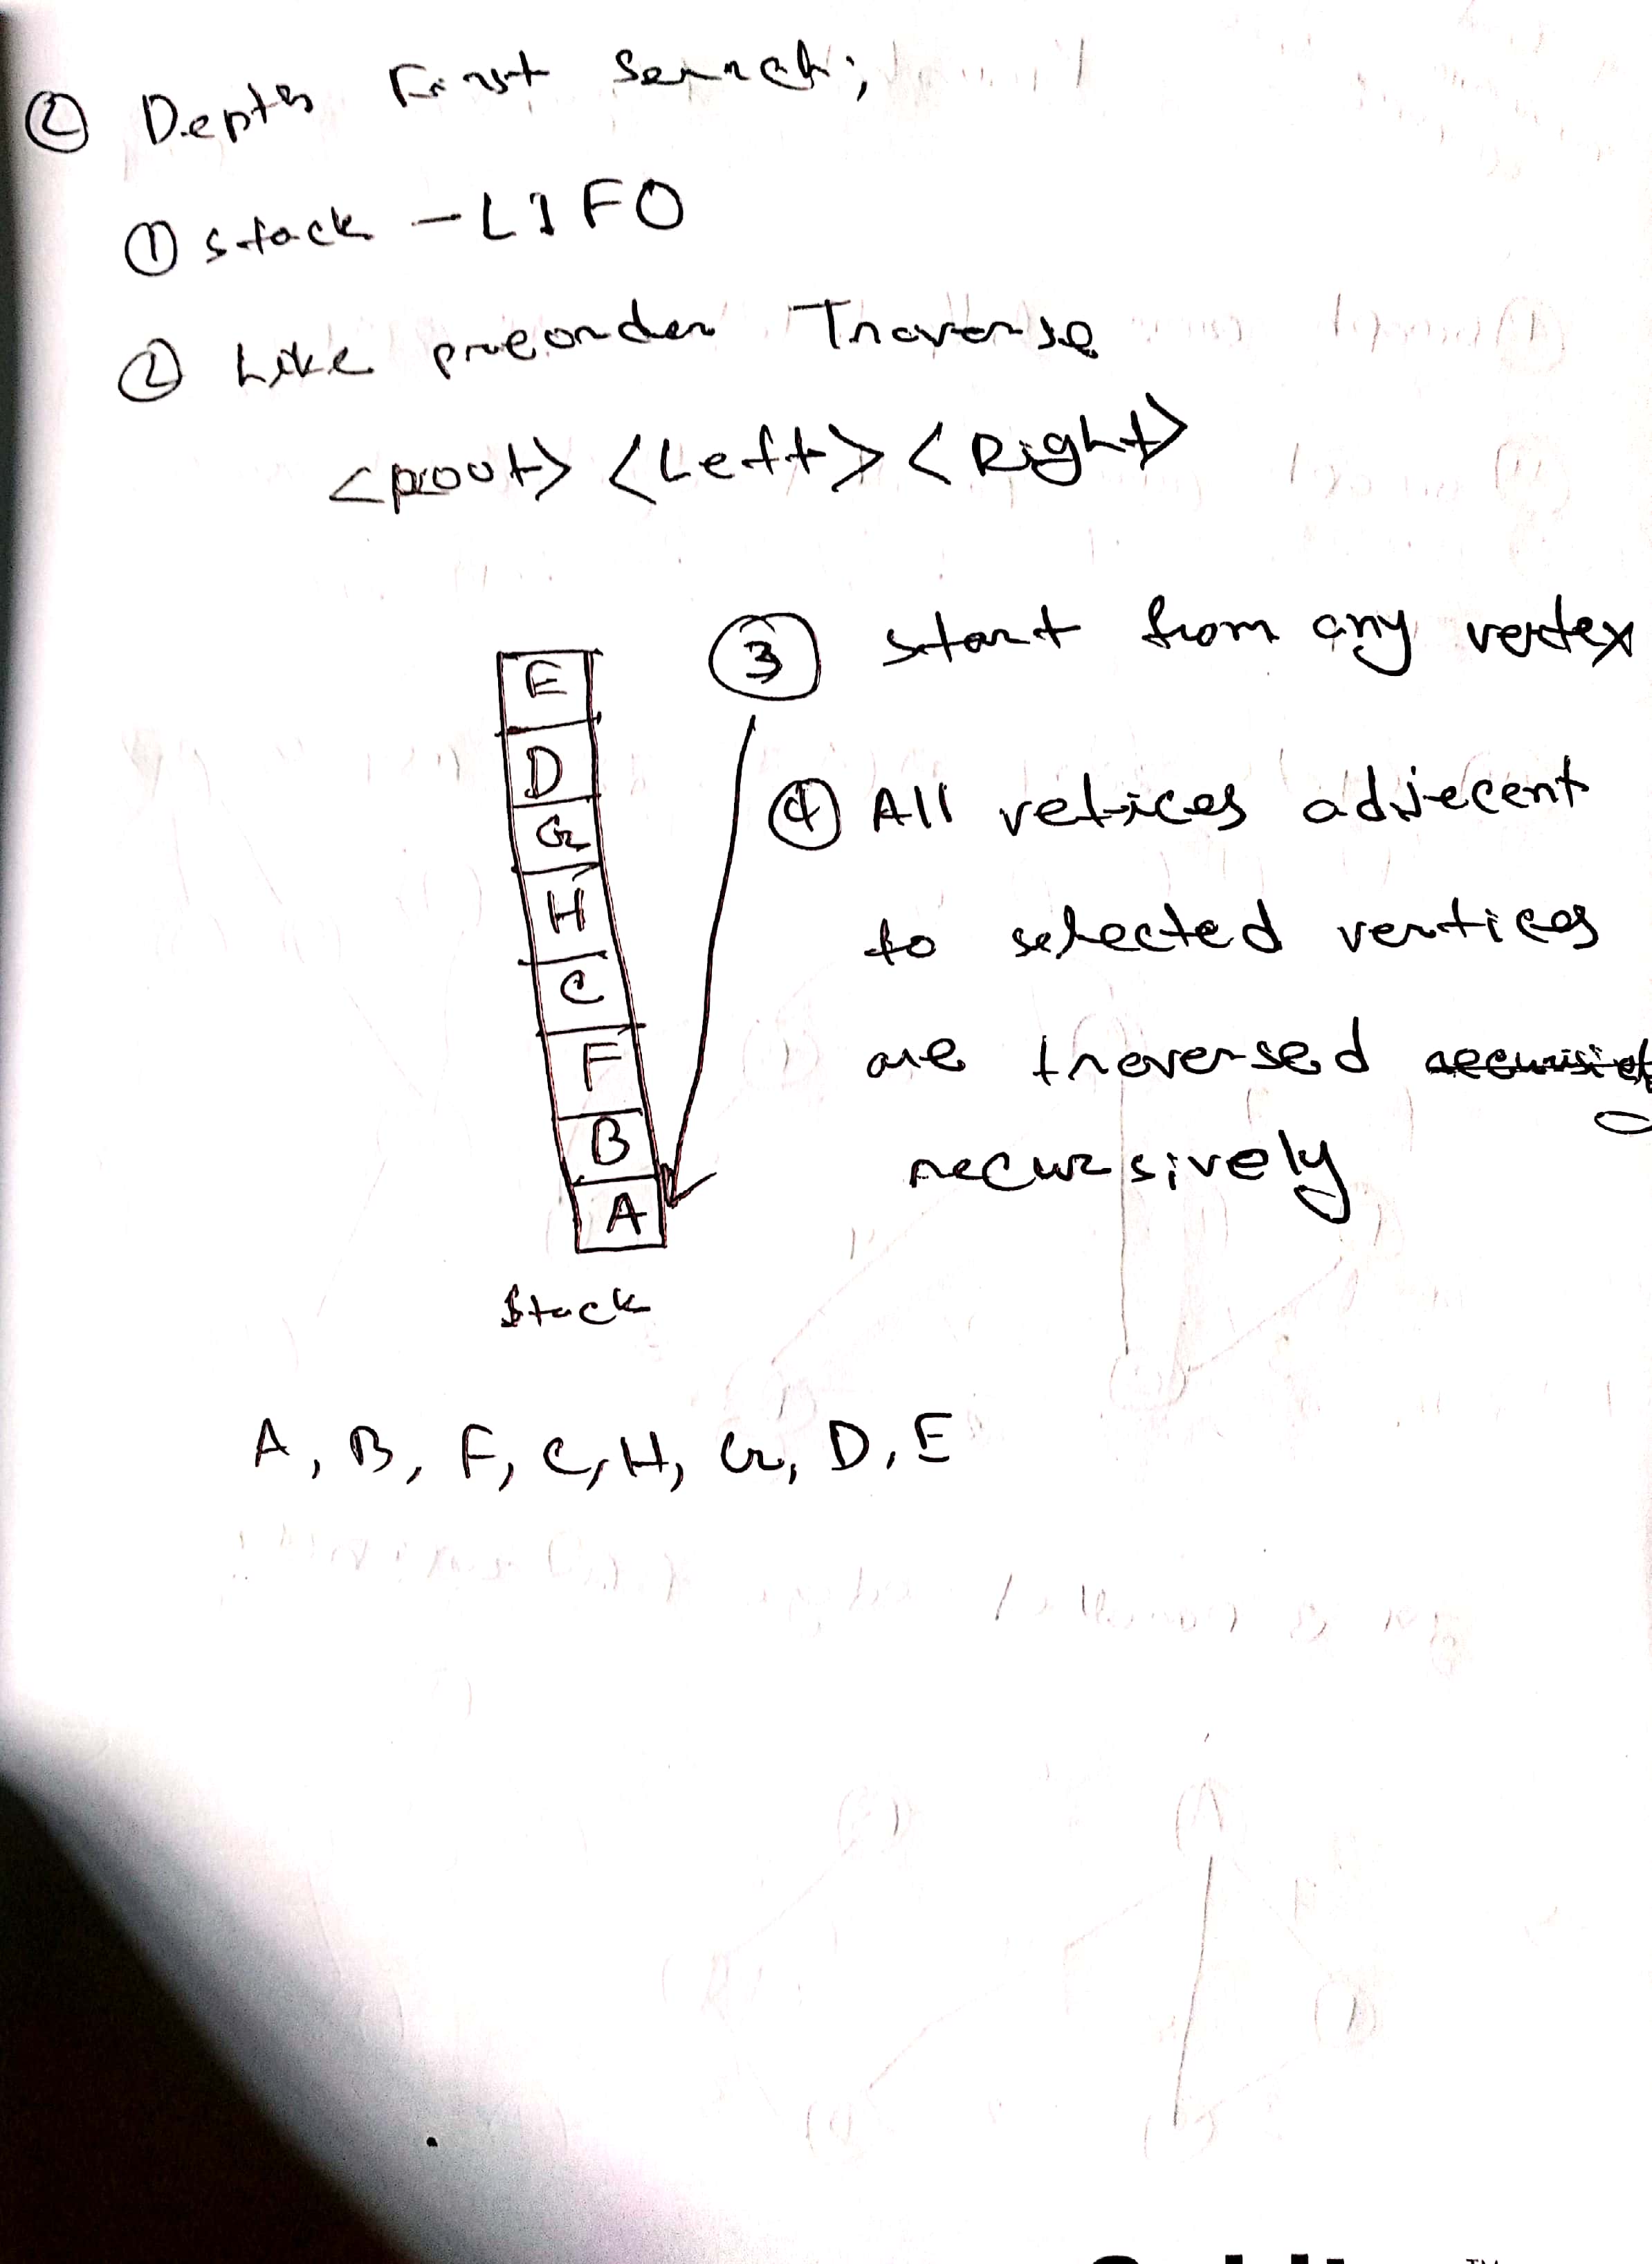 ② Depth First Search;
① stack - LIFO
② Like preorder Traverse
<root> <Left> <Right>
③ start from any vertex
④ All vetices adjecent
to selected vertices
are traversed
recursively
E
D
G
H
C
F
B
A
Stack
A, B, F, C, H, G, D, E